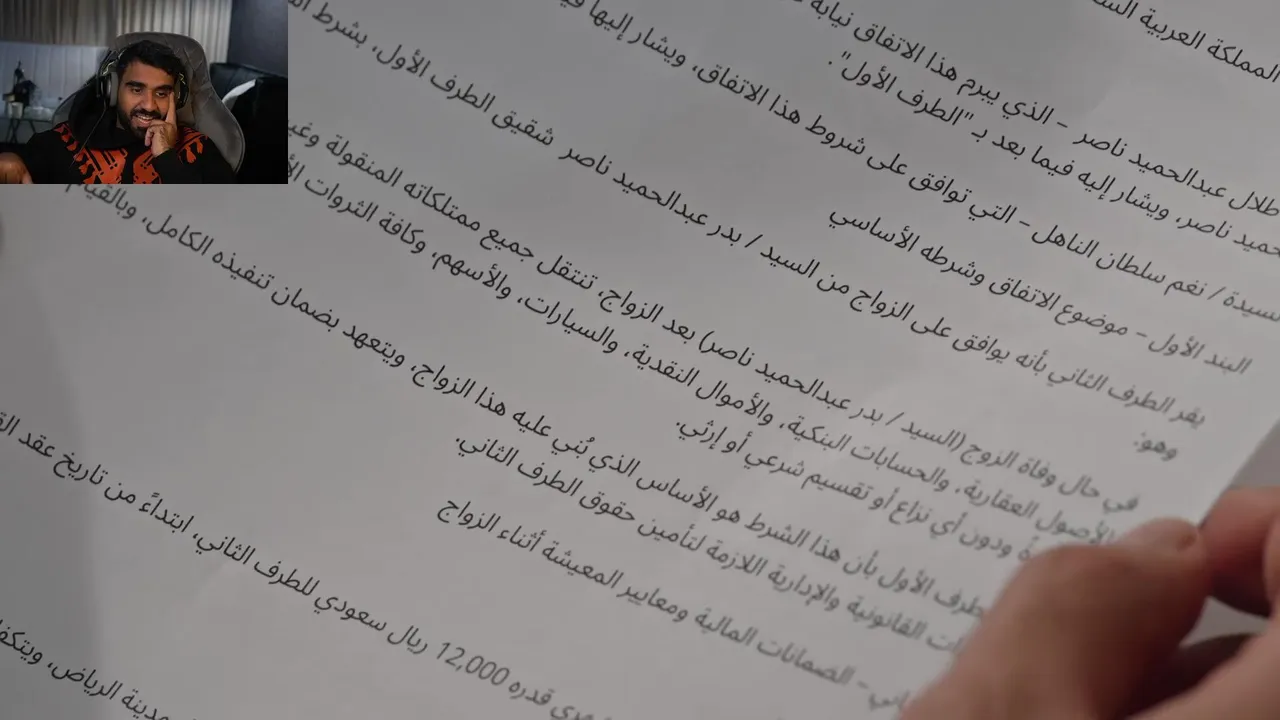 المملكة العربية
طلال عبدالحميد ناصر - الذي يبرم هذا الاتفاق نيابة
حميد ناصر، ويشار إليه فيما بعد بـ "الطرف الأول".
السيدة / نغم سلطان الناهل - التي توافق على شروط هذا الاتفاق، ويشار إليها
البند الأول - موضوع الاتفاق وشرطه الأساسي
يقر الطرف الثاني بأنه يوافق على الزواج من السيد / بدر عبدالحميد ناصر شقيق الطرف الأول، بشرط
وهو:
في حال وفاة الزوج (السيد / بدر عبدالحميد ناصر) بعد الزواج، تنتقل جميع ممتلكاته المنقولة
الأصول العقارية، والحسابات البنكية، والأموال النقدية، والسيارات، والأسهم، وكافة الثروات
ودون أي نزاع أو تقسيم شرعي أو إرثي.
الطرف الأول بأن هذا الشرط هو الأساس الذي بُني عليه هذا الزواج، ويتعهد بضمان تنفيذه الكامل، وبالقيام
القانونية والإدارية اللازمة لتأمين حقوق الطرف الثاني.
- الضمانات المالية ومعايير المعيشة أثناء الزواج
قدره 12,000 ريال سعودي للطرف الثاني، ابتداءً من تاريخ عقد
مدينة الرياض،